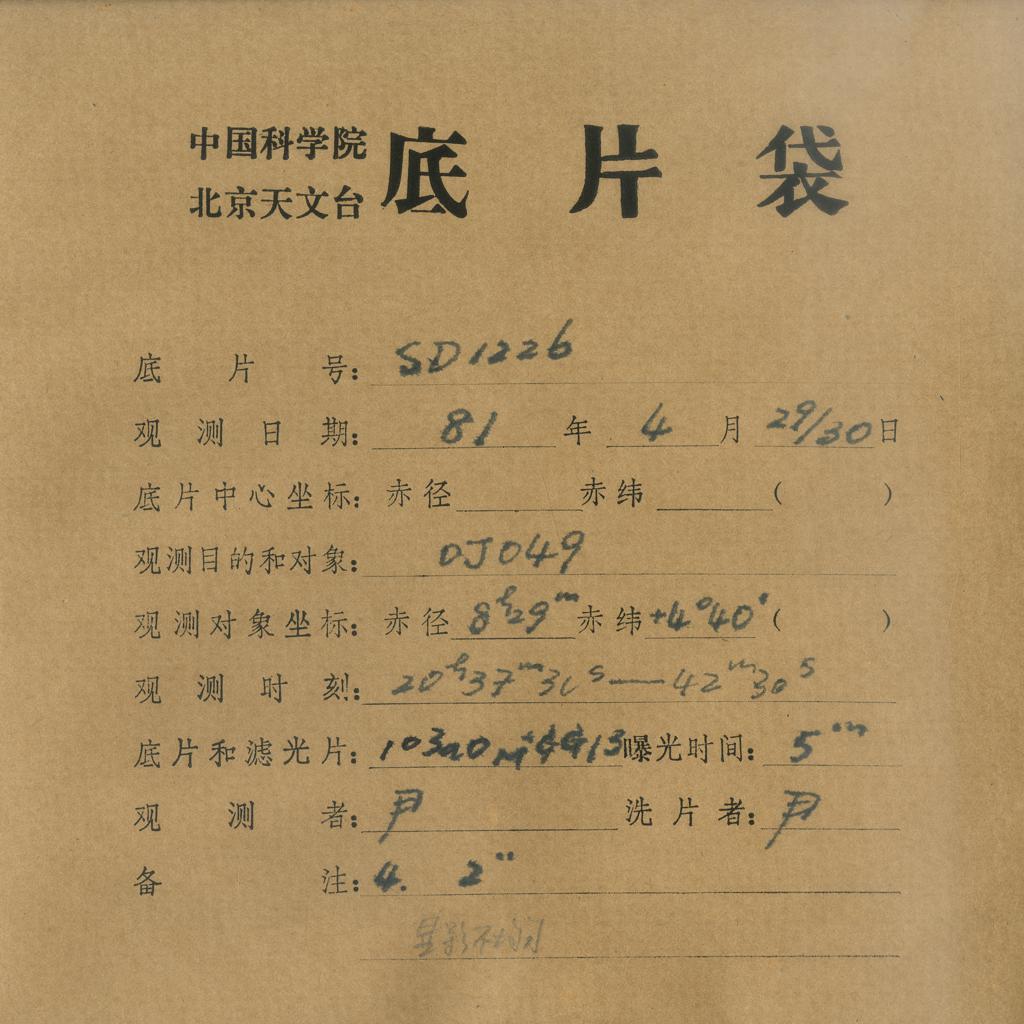 中国科学院
北京天文台
底片袋
底片号: SD1226
观测日期: 81年4月29/30日
底片中心坐标: 赤径 赤纬 ( )
观测目的和对象: OJ049
观测对象坐标: 赤径 8h29m 赤纬 +4°40′ ( )
观测时刻: 20h37m30s—42m30s
底片和滤光片: 103aO GG13 曝光时间: 5m
观测者: 尹 洗片者: 尹
备注: 4. 2"
显影不均匀